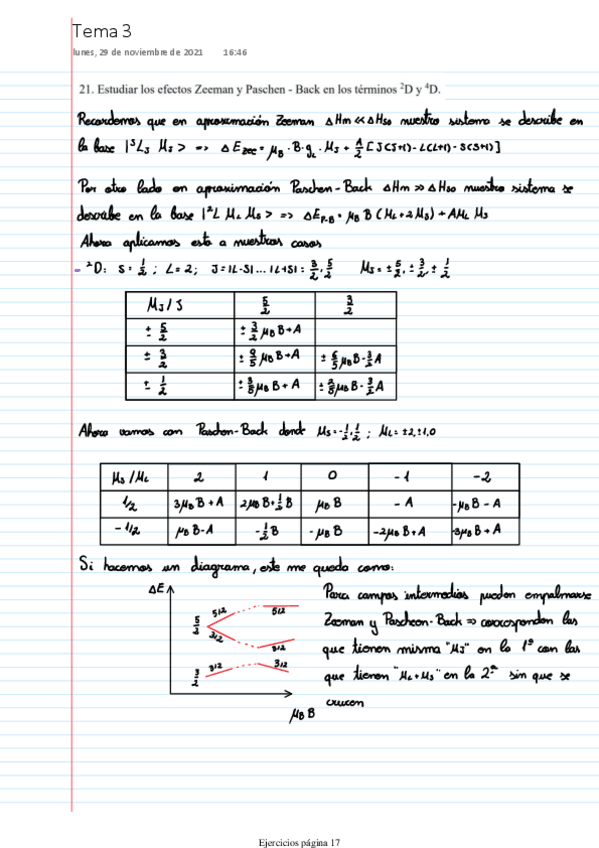 Tema 3
lunes, 29 de noviembre de 2021 16:46
21. Estudiar los efectos Zeeman y Paschen - Back en los términos ²D y ⁴D.
Recordemos que en aproximación Zeeman ΔHm << ΔHso nuestro sistema se describe en
la base |ˢLJ MJ> => ΔEzee = μB · B · gL · MJ + A/2 [J(J+1) - L(L+1) - S(S+1)]
Por otro lado en aproximación Paschen-Back ΔHm >> ΔHso nuestro sistema se
describe en la base |²L ML Ms> => ΔEP-B = μB B (ML + 2Ms) + AML Ms
Ahora aplicamos esto a nuestros casos
- ²D: S = 1/2 ; L = 2; J = |L-S|...|L+S| = 3/2, 5/2 MJ = ± 5/2, ± 3/2, ± 1/2
MJ/J 5/2 3/2
± 5/2 ± 3/2 μB B + A
± 3/2 ± 9/5 μB B + A ± 6/5 μB B - 3/2 A
± 1/2 ± 3/5 μB B + A ± 2/5 μB B - 3/2 A
Ahora vamos con Paschen-Back donde Ms = -1/2, 1/2 ; ML = ±2, ±1, 0
Ms/ML 2 1 0 -1 -2
1/2 3μB B + A 2μB B + 1/2 B μB B - A -μB B - A
-1/2 μB B - A -1/2 B -μB B -2μB B + A -3μB B + A
Si hacemos un diagrama, este me queda como:
ΔE
5/2 5/2 5/2
3/2 3/2
3/2 3/2 3/2
μB B
Para campos intermedios pueden empalmarse
Zeeman y Paschen-Back => corresponden las
que tienen misma "MJ" en lo 1º con las
que tienen "ML + Ms" en la 2ª sin que se
crucen
Ejercicios página 17